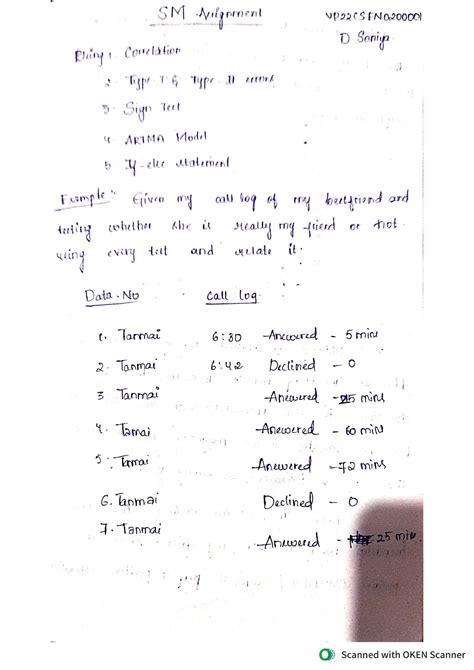 SM Assignment
VP22CSEN0200001
D Soniya
Using 1. Correlation
2. Type I & Type II errors
3. Sign Test
4. ARIMA Model
5. If-else statement
Example:- Given my call log of my bestfriend and
testing whether she is really my friend or not.
using every test and relate it.
Data.No Call log.
1. Tanmai 6:30 Answered - 5 mins
2. Tanmai 6:42 Declined - 0
3 Tanmai Answered - 25 mins
4. Tamai Answered - 60 mins
5. Tamai Answered - 72 mins
6. Tanmai Declined - 0
7. Tanmai Answered - 25 min
Scanned with OKEN Scanner